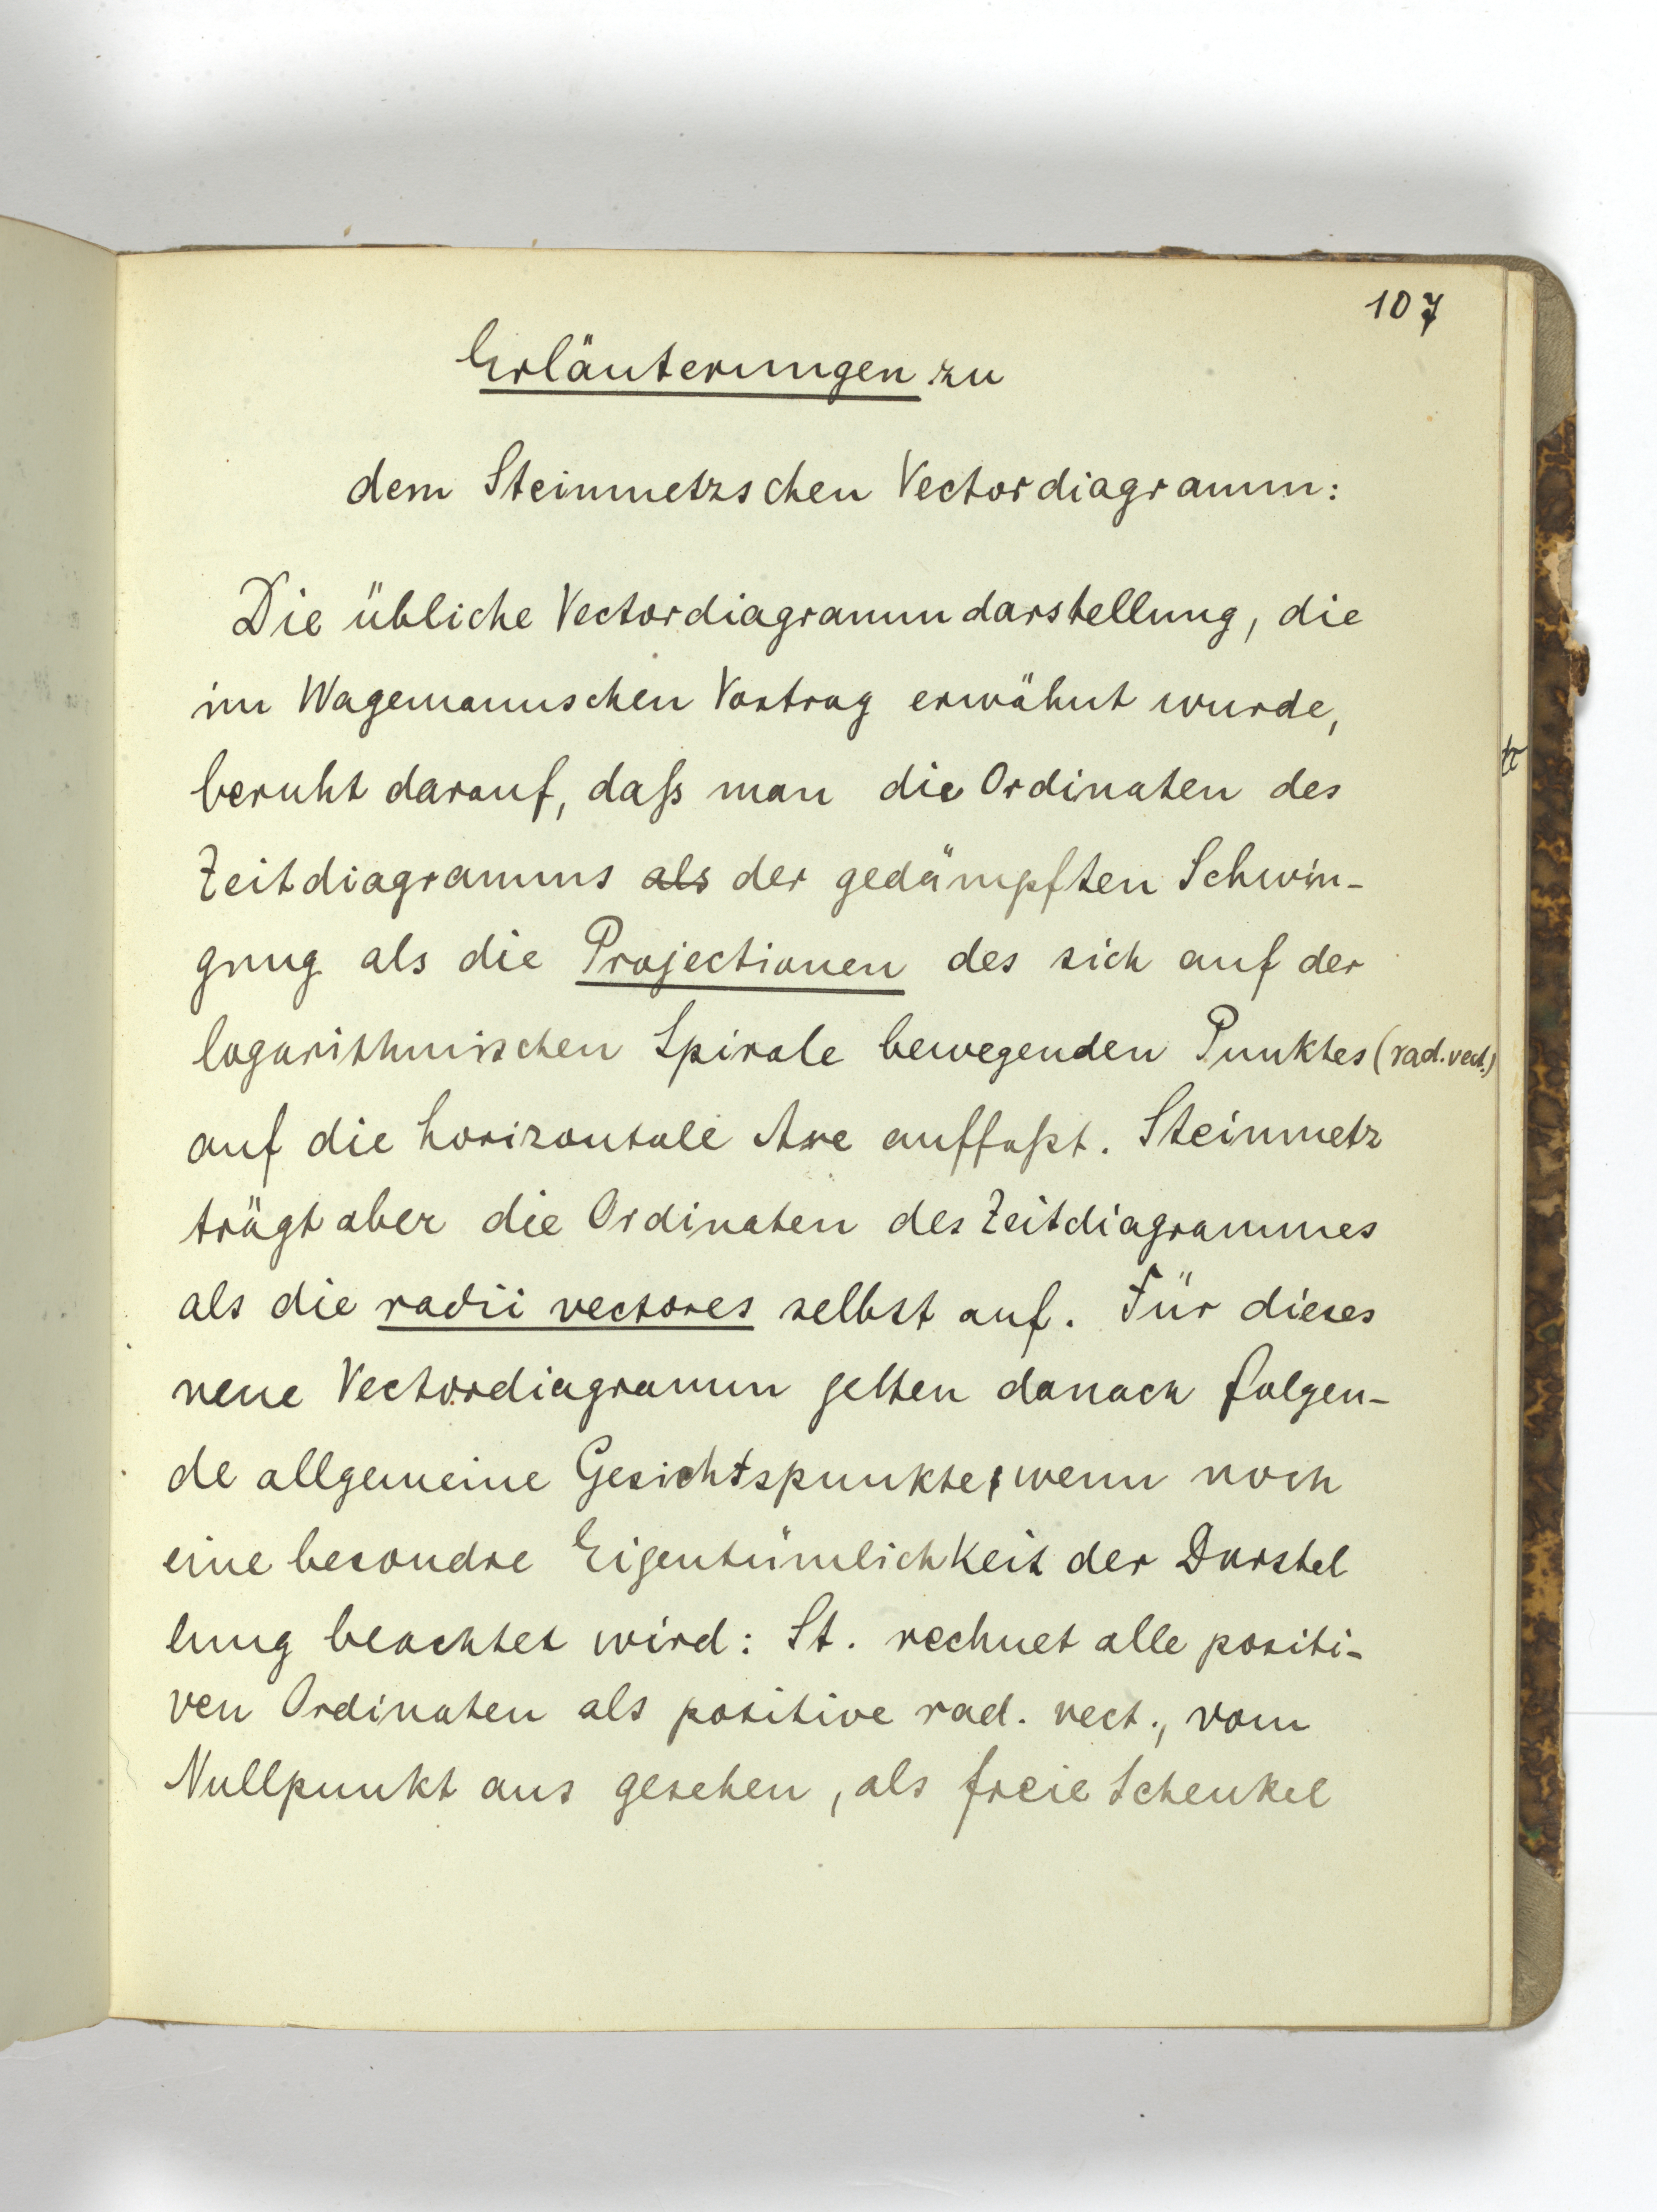 107
Erläuterungen zu
dem Steinmetzschen Vectordiagramm:
Die übliche Vectordiagrammdarstellung, die
im Wagemannschen Vortrag erwähnt wurde,
beruht darauf, daß man die Ordinaten des
Zeitdiagramms als der gedämpften Schwin-
gung als die Projectionen des sich auf der
logarithmischen Spirale bewegenden Punktes (rad. vect.)
auf die horizontale Axe auffaßt. Steinmetz
trägt aber die Ordinaten des Zeitdiagrammes
als die radii vectores selbst auf. Für dieses
neue Vectordiagramm gelten danach folgen-
de allgemeine Gesichtspunkte, wenn noch
eine besondre Eigentümlichkeit der Darstel
lung beachtet wird: St. rechnet alle positi-
ven Ordinaten als positive rad. vect., vom
Nullpunkt aus gesehen, als freie Schenkel